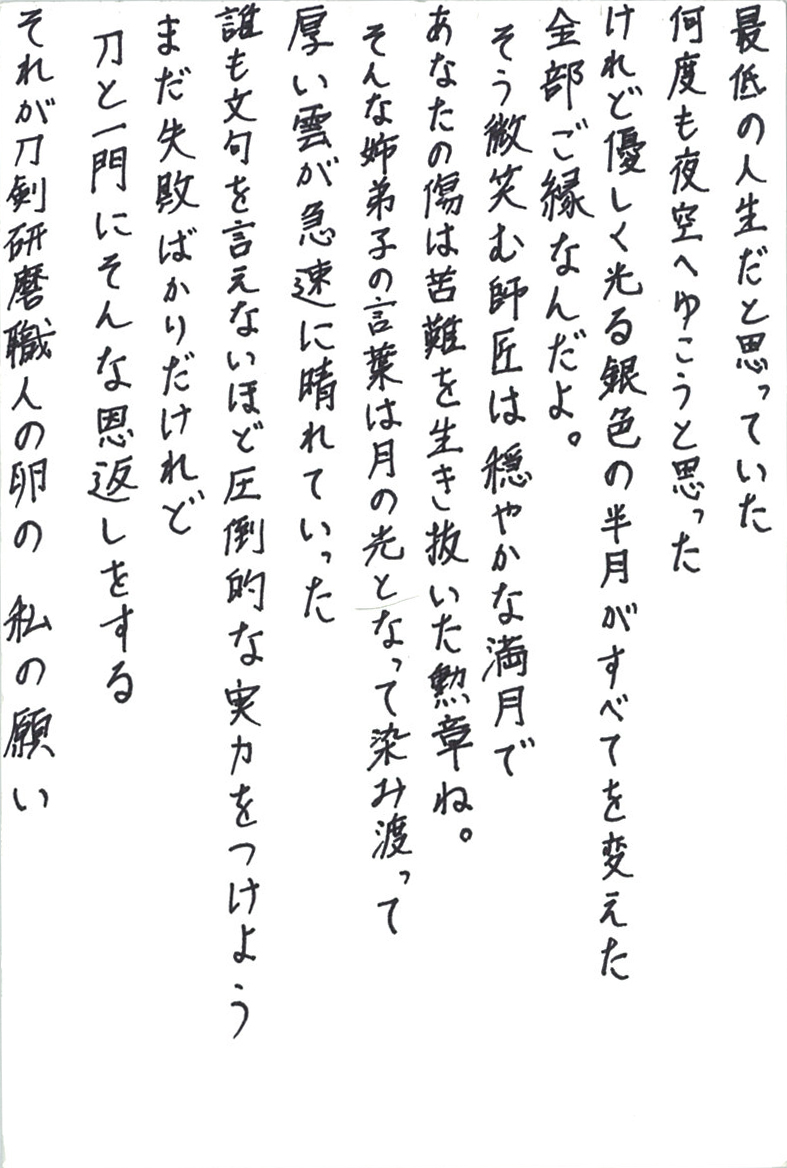 最低の人生だと思っていた
何度も夜空へゆこうと思った
けれど優しく光る銀色の半月がすべてを変えた
全部ご縁なんだよ。
そう微笑む師匠は穏やかな満月で
あなたの傷は苦難を生き抜いた勲章ね。
そんな姉弟子の言葉は月の光となって染み渡って
厚い雲が急速に晴れていった
誰も文句を言えないほど圧倒的な実力をつけよう
まだ失敗ばかりだけれど
刀と一門にそんな恩返しをする
それが刀剣研磨職人の卵の 私の願い